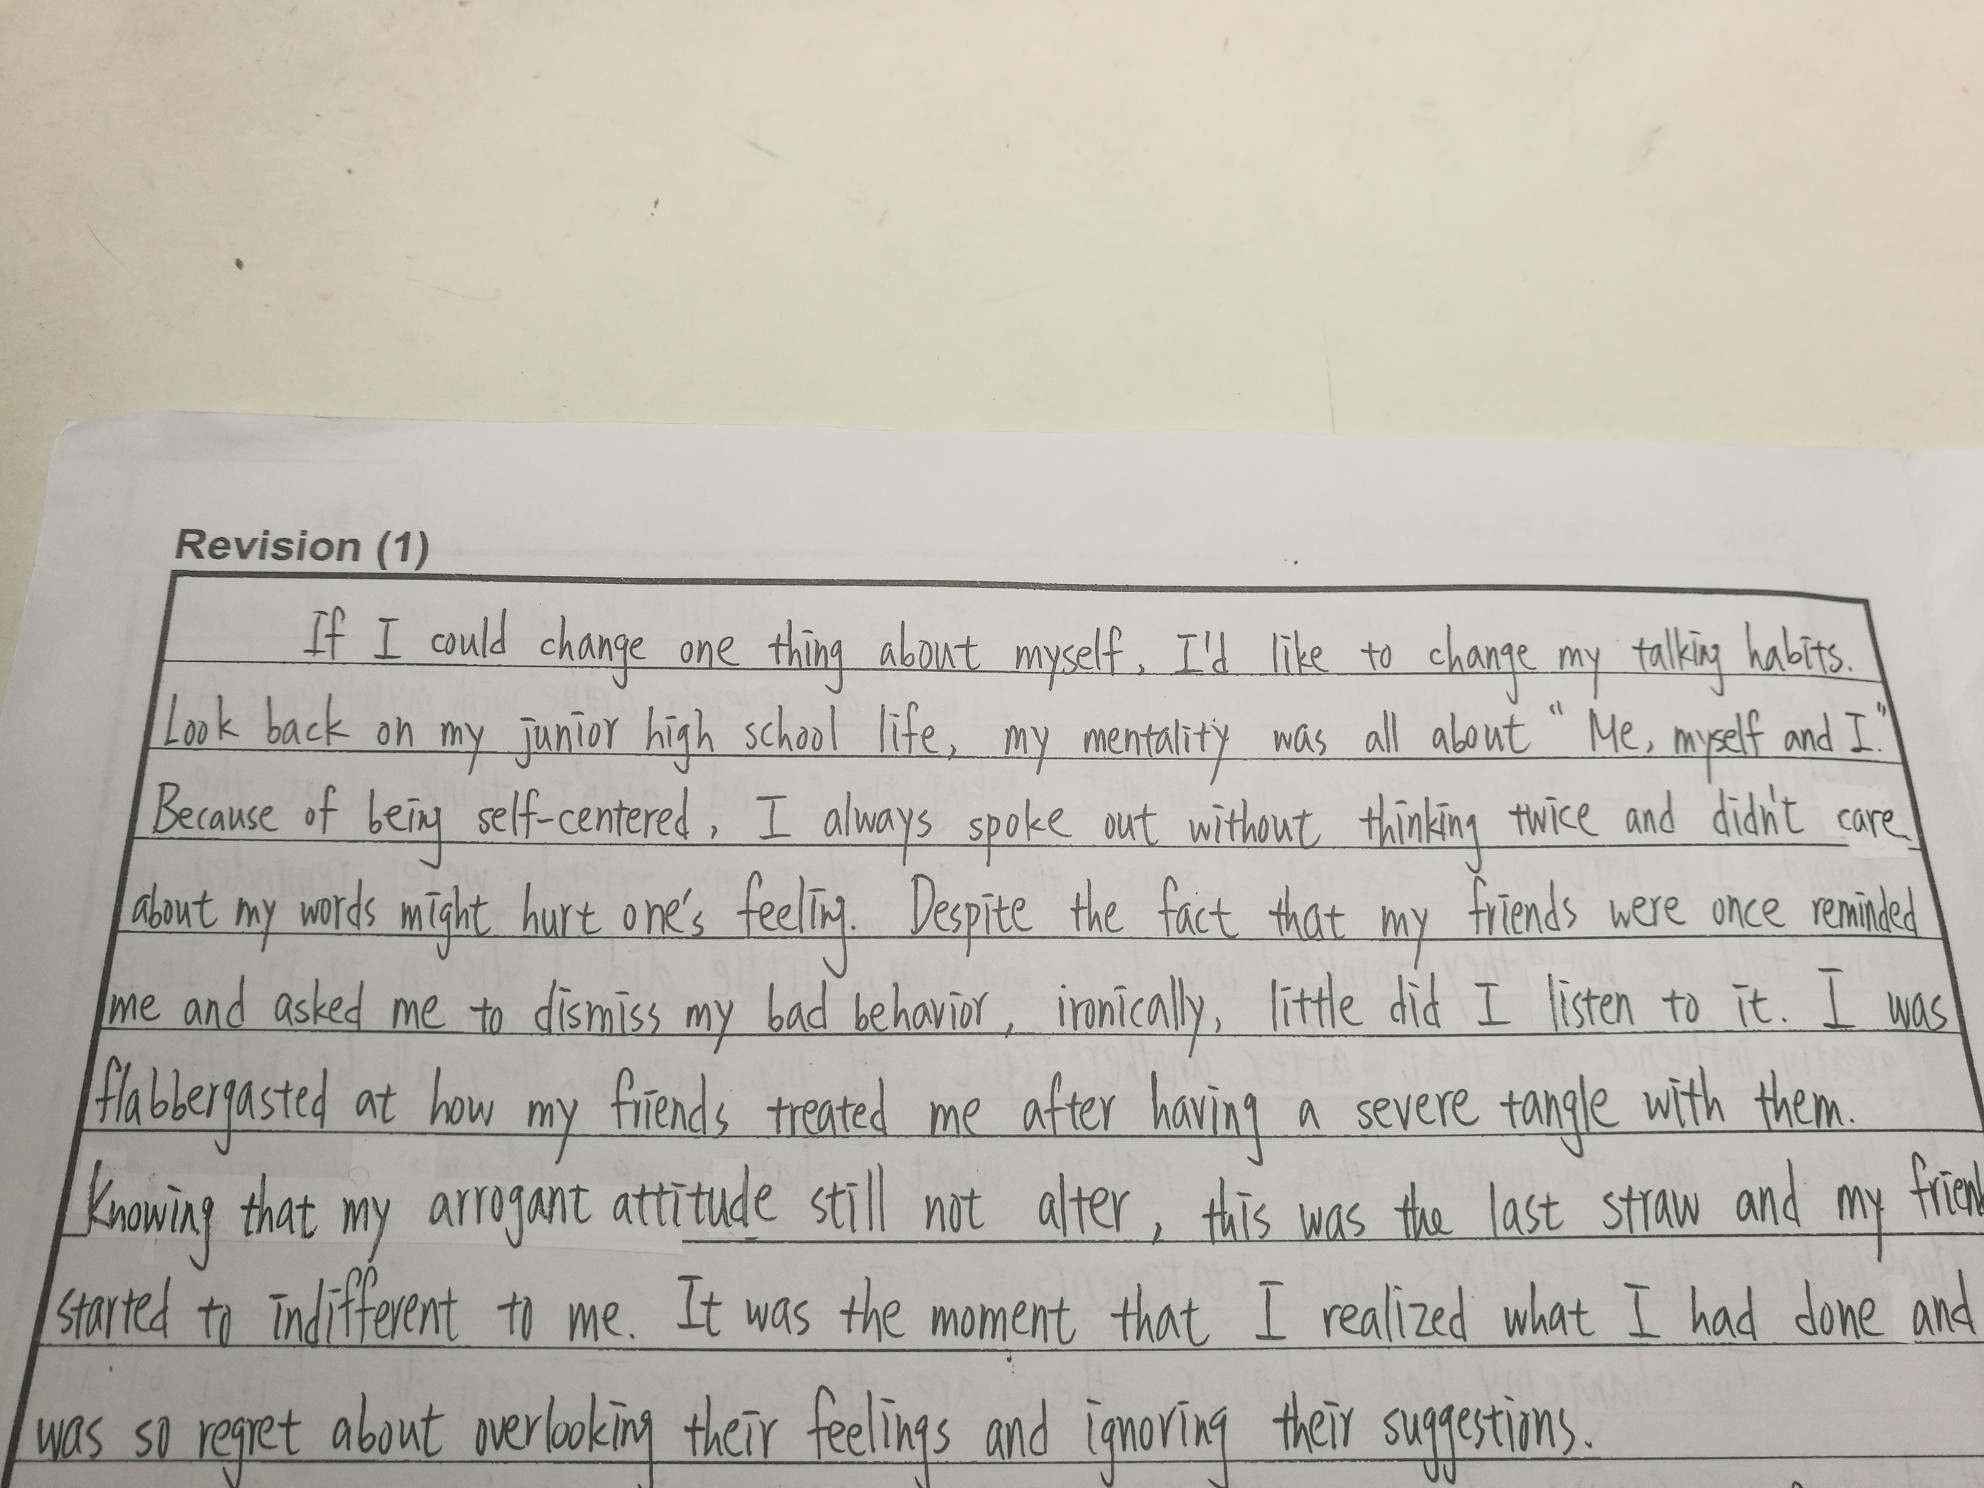 Revision (1)
If I could change one thing about myself, I'd like to change my talking habits.
Look back on my junior high school life, my mentality was all about "Me, myself and I."
Because of being self-centered, I always spoke out without thinking twice and didn't care
about my words might hurt one's feeling. Despite the fact that my friends were once reminded
me and asked me to dismiss my bad behavior, ironically, little did I listen to it. I was
flabbergasted at how my friends treated me after having a severe tangle with them.
Knowing that my arrogant attitude still not alter, this was the last straw and my frien
started to indifferent to me. It was the moment that I realized what I had done and
was so regret about overlooking their feelings and ignoring their suggestions.